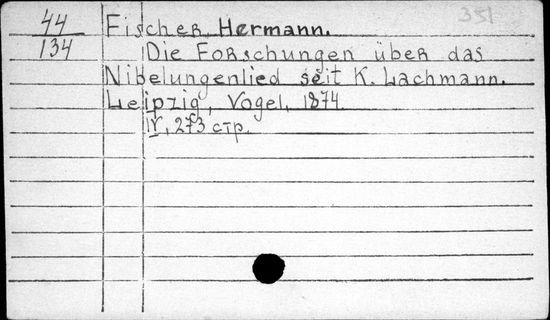 44
134
351
Fischer, Hermann.
Die Forschungen über das
Nibelungenlied seit K. Lachmann.
Leipzig, Vogel, 1874.
IV, 273 стр.